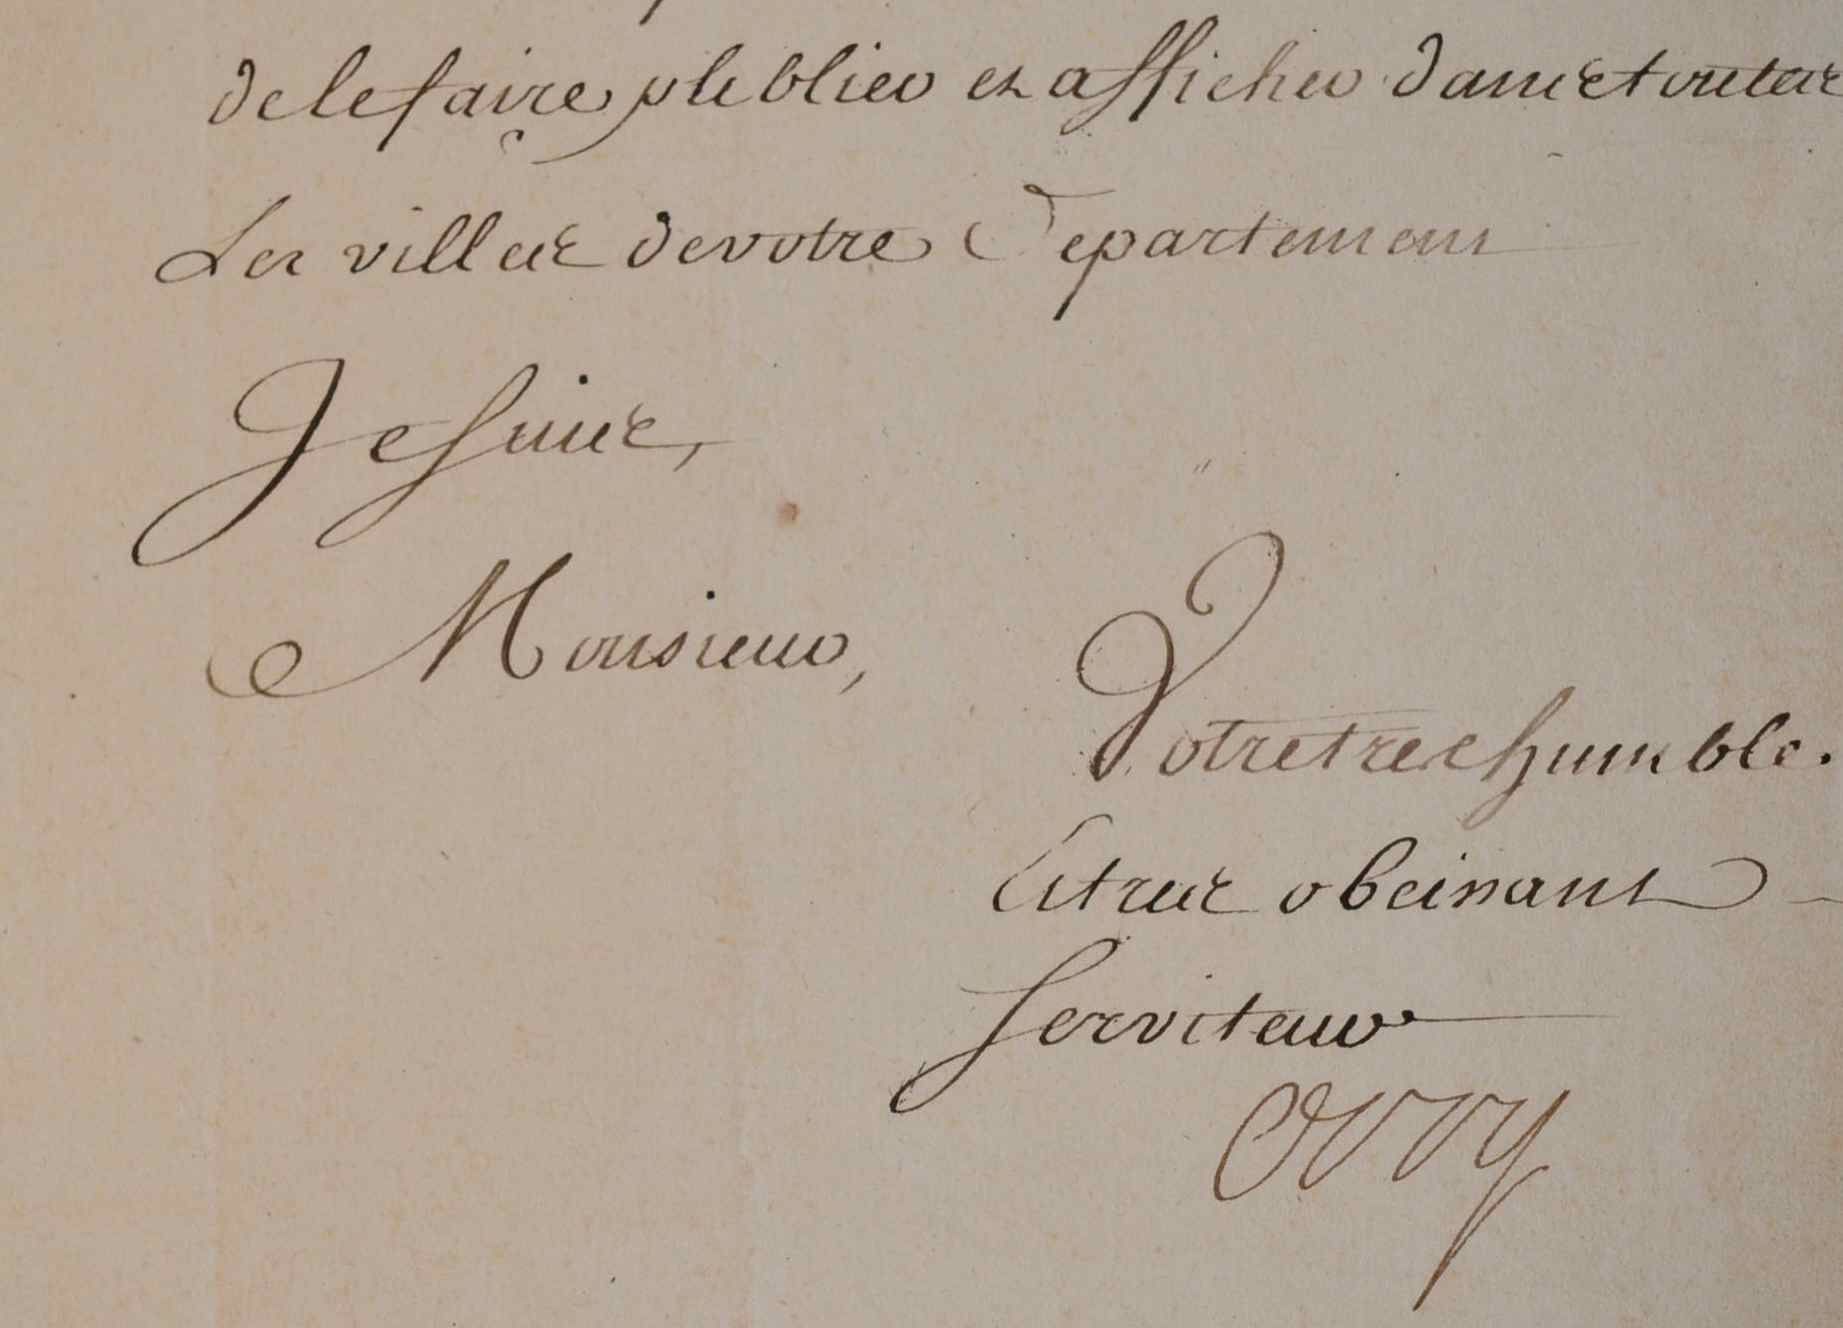 de le faire publier et afficher dans toutes
Les villes de votre Departement
Je suis,
Monsieur,
Votre tres humble.
Et tres obeissant
Serviteur
Orry